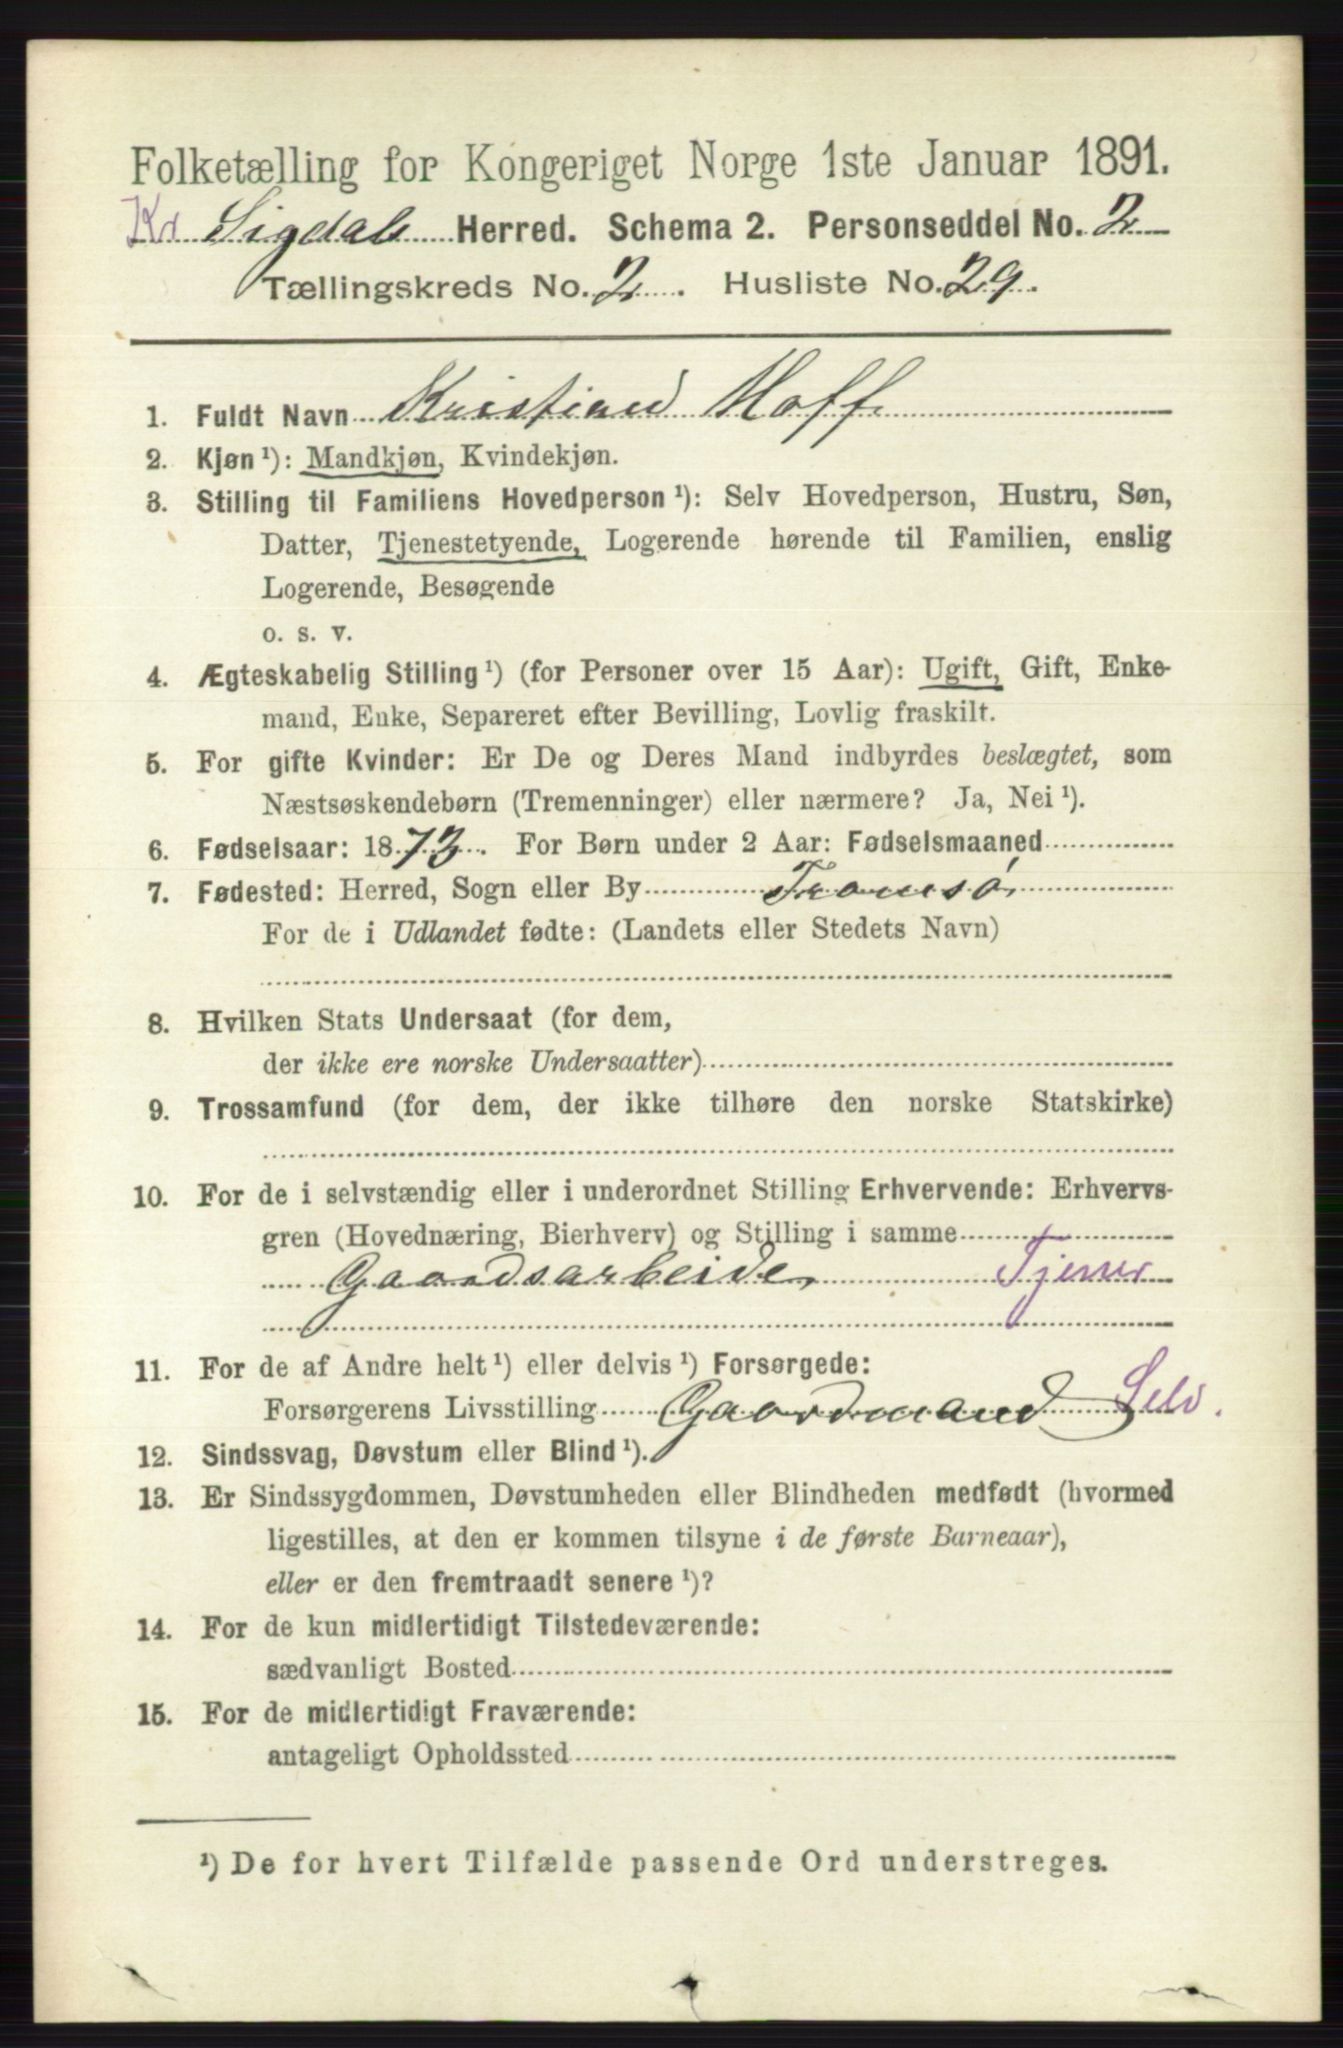 Folketælling for Kongeriget Norge 1ste Januar 1891.
Kr Sigdals Herred. Schema 2. Personseddel No. 2
Tællingskreds No. 2. Husliste No. 29.
1. Fuldt Navn Kristian Hoff
2. Kjøn ¹): Mandkjøn, Kvindekjøn.
3. Stilling til Familiens Hovedperson ¹): Selv Hovedperson, Hustru, Søn,
Datter, Tjenestetyende, Logerende hørende til Familien, enslig
Logerende, Besøgende
o. s. v.
4. Ægteskabelig Stilling ¹) (for Personer over 15 Aar): Ugift, Gift, Enke-
mand, Enke, Separeret efter Bevilling, Lovlig fraskilt.
5. For gifte Kvinder: Er De og Deres Mand indbyrdes beslægtet, som
Næstsøskendebørn (Tremenninger) eller nærmere? Ja, Nei ¹).
6. Fødselsaar: 1873. For Børn under 2 Aar: Fødselsmaaned
7. Fødested: Herred, Sogn eller By Tromsø
For de i Udlandet fødte: (Landets eller Stedets Navn)
8. Hvilken Stats Undersaat (for dem,
der ikke ere norske Undersaatter)
9. Trossamfund (for dem, der ikke tilhøre den norske Statskirke)
10. For de i selvstændig eller i underordnet Stilling Erhvervende: Erhvervs-
gren (Hovednæring, Bierhverv) og Stilling i samme
Gaardsarbeide Tjener
11. For de af Andre helt ¹) eller delvis ¹) Forsørgede:
Forsørgerens Livsstilling Gaardmand Selv.
12. Sindssvag, Døvstum eller Blind ¹).
13. Er Sindssygdommen, Døvstumheden eller Blindheden medfødt (hvormed
ligestilles, at den er kommen tilsyne i de første Barneaar),
eller er den fremtraadt senere ¹)?
14. For de kun midlertidigt Tilstedeværende:
sædvanligt Bosted
15. For de midlertidigt Fraværende:
antageligt Opholdssted
¹) De for hvert Tilfælde passende Ord understreges.